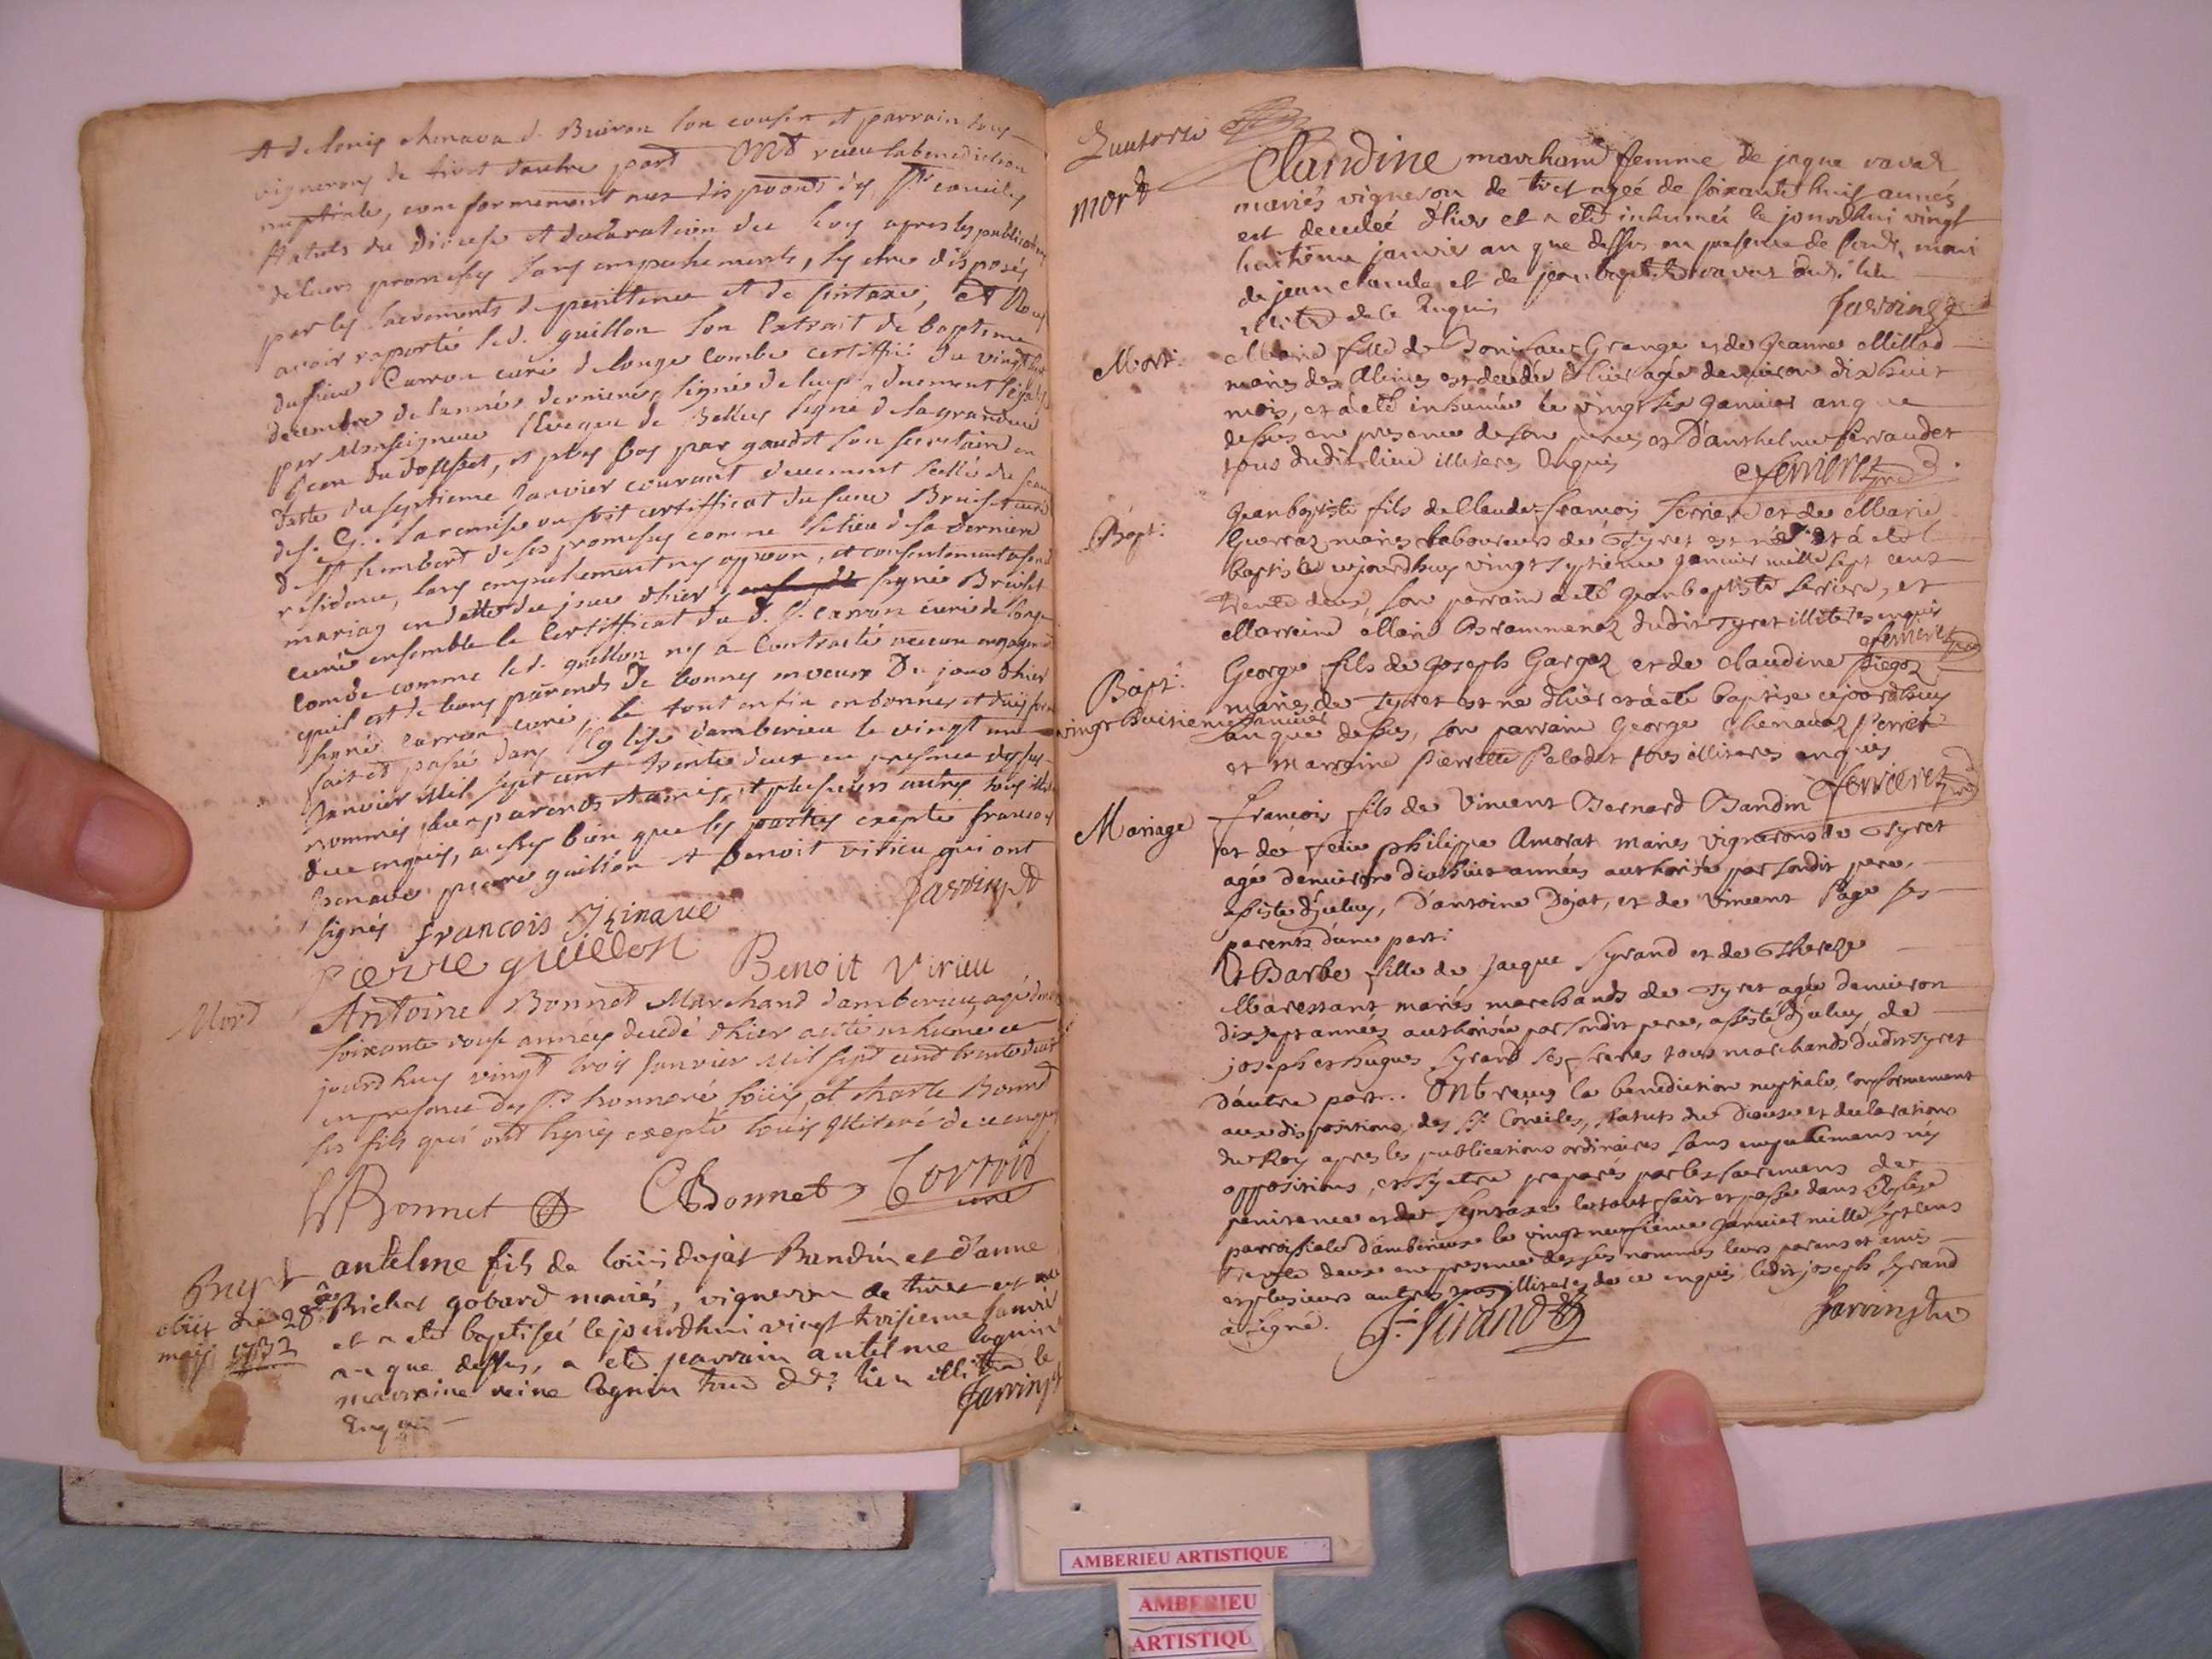 A de louis chenava d. Buiron son cousin et parrain tous
vignerons de tiret dautre part ONT receu la benediction
nuptiale, conformement aux dispositions des Sts conciles
statuts du Diocese et declaration du Roy apres les publications
de leurs promesses sans empechements, s'y etre disposés
par les sacrements de penitence et de sintaxe, et Nous
avoir raporté led. guillon son Extrait de baptême
du sieur Carron curé de longecombe certiffié du vingt
decembre de l'année derniere, signé de luy, duement
par Monseigneur l'Eveque de Belley signé de sa grandeur
et plus bas par gaudet son secretaire en
datte du septieme Janvier courant deuement scellé du sceau
de S. G. La remise ou soit certifficat du sieur Bruiset curé
de St Rambert de ses promesses comme de la derniere
residence, sans empechement ny opposon, et consentement
mariag en datte du jour d'hier signé Bruiset
curé ensemble le Certifficat du d. Sr. carron curé de longe
combe comme led. guillon n'y a Contracté aucun engagement
quil est de bons parents De bonnes moeurs Du jour d'hier
signé Carron curé, le tout enfin en bonnes et dues formes
fait et passé dans l'Eglise d'amberieu le vingt un
Janvier Mil sept cent trente deux en presence des sus
nommés leurs parents et amis, et plusieurs autres tous
de ce enquis, aussy bien que les parties excepté francois
chenave pierre guillon et benoit virieu qui ont
signés Jarrin
francois Chinave
Pierre guillon
Benoit Virieu
Mord
Antoine Bonnet Marchand d'amberieu, agé de
soixante onze années decedé d'hier a eté inhumé ce
jourdhuy vingt trois Janvier Mil sept cent trente deux
en presence des Srs honnoré louis et charle Bonnet
ses fils qui ont signés excepté louis Illiteré de ce enquis
H Bonnet C Bonnet Cortois
curé
Bapt
antelme fils de louis dojat Bandin et d'anne
obiit die 28a
maij 1732
Richar gobard mariés, vigneron de tiret est né
et a eté baptisé le jourdhui vingt troisieme Janvier
an que dessus, a eté parrain antelme cognin
marraine reine Cognin tous dud. lieu illitere le
Enquis Jarrin
Mort
Claudine marchand femme de jaque ravat
mariés vigneron de tiret ageé de soixante huit années
est decedeé d'hier et a eté inhumeé le jourdhui vingt
huitieme janvier an que dessus en presence de sond. mari
de jean claude et de jean baptiste ravat dud. lieu
illiteré de ce Enquis Jarrin
Mort:
Marie fille de Boniface Grange et de Jeanne Millod
mariés des Alimes est decedée d'hier agée d'environ dix huit
mois, et a eté inhumée le vingt six Janvier an que
dessus en presence de son pere, et D'anthelme ferraudet
tous dudit lieu illiteres Enquis Ferrieret
Bapt:
Jean baptiste fils de Claude francois ferrier et de Marie
Guerraz mariés laboureurs de Tyret est né et a eté
baptisé cejourdhuy vingt septieme Janvier mille sept cens
trente deux, son parrain a eté Jean baptiste ferriere, et
Marraine Marie Brammeraz dudit Tyret illiteres enquis
Ferrieret
Bapt:
vingt huitieme Janvier
George fils de Joseph Gargoz et de claudine piegoz
mariés de Tyret est né d'hier et a eté baptisé cejourdhuy
an que dessus, son parrain George Chenavaz Perret
et marraine Pierrette Peladet tous illiteres enquis
Ferrieret
Mariage
francois fils de Vincent Bernard Bandin
et de feüe philippe Amorat mariés Vignerons de Tyret
agé d'environ dix huit années authorisé par sondit pere,
assisté d'jceluy, D'antoine Dojat, et de Vincent Page ses
parents d'une part:
Et Barbe fille de Jacque Syrand et de Thereze
Marestant mariés marchands de Tyret agée d'environ
dix sept années authorisée par sondit pere, assisté d'jceluy de
joseph et hugues Syrand ses freres tous marchands dudit Tyret
d'autre part.. ONt receus la benediction nuptiale, conformement
aux dispositions des Sts Conciles, statuts du diocese et declarations
du Roy apres les publications ordinaires sans empechemens ny
oppositions, et s'y etre preparés par les sacremens de
penitence et de syntaxe le tout fait et passé dans l'Eglise
parroissiale d'amberieux le vingt neufvieme Janvier mille sept cens
trente deux en presence des sus nommés leurs parens et amis
et plusieurs autres tous illiteres de ce enquis, ledit joseph Syrand
a signé. J. Sirand Jarrin
AMBERIEU ARTISTIQUE
AMBERIEU
ARTISTIQU